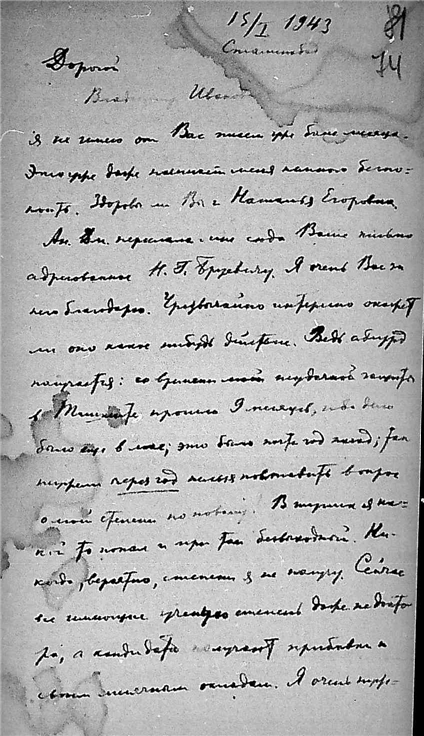 15/I 1943
81
74
Сталинабад
Дорогой
Владимир Иванович
я не имею от Вас писем уже более месяца.
Это уже даже начинает меня немного беспо-
коить. Здоровы ли Вы и Наталья Егоровна
Ан. Вл. переслала мне сюда Ваше письмо
адресованное Н. Г. Бруевичу. Я очень Вас за
него благодарю. Чрезвычайно интересно окажет
ли оно какое нибудь действие. Ведь абсурд
получается: со времени моей неудачной защиты
в Ташкенте прошло 9 месяцев, ибо дело
было еще в мае; это было почти год назад; так
неужели через год нельзя поставить вопрос
о моей степени по новому! В тупик я ка-
кой то попал и при том безвыходный. Ни-
когда, вероятно, степени я не получу. Сейчас
все имеющие ученую степень даже не докто-
ра, а кандидата получают прибавки к
своим месячным окладам. Я очень